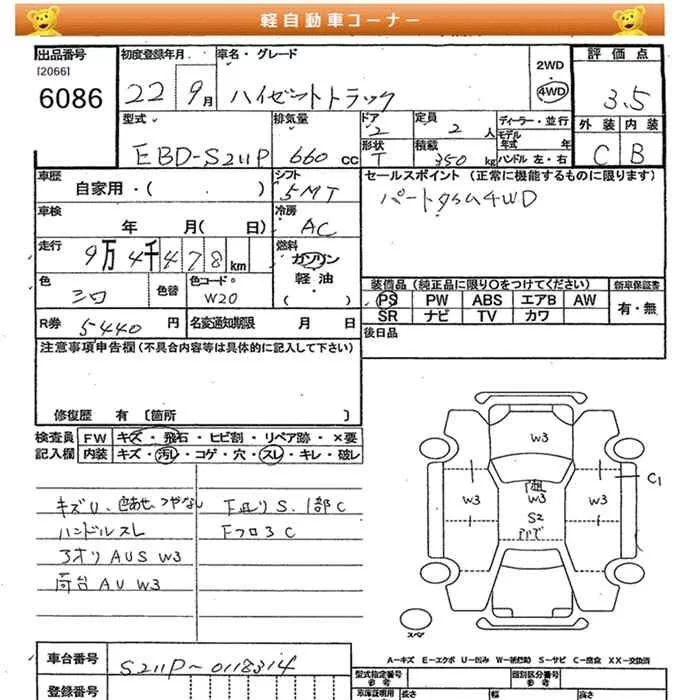 軽自動車コーナー
出品番号 初度登録年月 車名・グレード 2WD 評価点
[2066] 4WD
6086 22 9月 ハイゼットトラック 3.5
型式 排気量 ドア 定員 ディーラー・並行 外装 内装
2 2人 モデル年式 年
EBD-S211P 660cc 形状 T 積載 350kg ハンドル 左・右 C B
車歴 シフト セールスポイント(正常に機能するものに限ります)
自家用・( ) 5MT パートタイム4WD
車検 冷房
年 月( 日) AC
走行 燃料
9万4千478km ガソリン
軽油
色 色替 色コード 装備品(純正品に限り○をつけてください) 新車保証書
シロ W20 PS PW ABS エアB AW 有・無
SR ナビ TV カワ
R券 5440円 名変通知期限 月 日 後日品
注意事項申告欄(不具合内容等は具体的に記入して下さい)
修復歴 有 〔箇所 〕
検査員 FW キズ・飛石・ヒビ割・リペア跡・×要
記入欄 内装 キズ・汚レ・コゲ・穴・スレ・キレ・破レ
キズU、色あせ、つやなし
ハンドルスレ
アオリAUS W3
荷台AU W3
下廻りS、1部C
Fフロ3C
W3
C1
W3 W3 W3
S2
スペア
A-キズ E-エクボ U-凹み W-補修跡 S-サビ C-腐食 XX-交換済
車台番号 S211P-0118314
型式指定番号 類別区分番号
登録番号 参考 長さ 幅 高さ